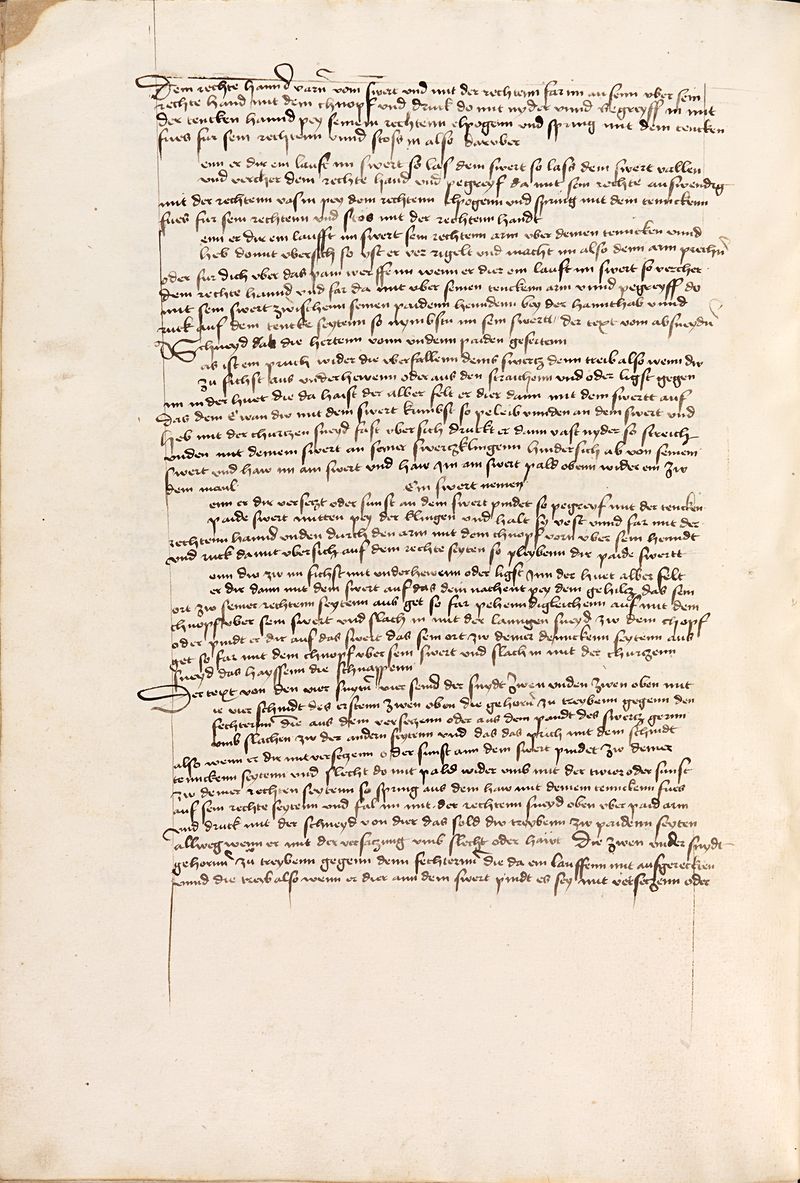 Dem rechte hannd varn vom swert vnd mit der rechtenn far im an senn vber sein
rechte hand mit dem chnopf vnd druk do mit nyder vnnd begreyff in mit
der tencken hannd pey seinem rechtenn elpogenn vnd spring mit dem tencken
fues für sein rechtenn vnnd stoss in also darüber
enn er dir ein laufft im swert so las dem swert so lass dem swert vallen
vnd vercher dein rechte hand vnd pegreyf da mit sein rechte auswendig
mit der rechtenn vasin pey dem rechtenn elpogenn vnd spring mit dem tennckenn
fues für sein rechtenn vnd stos mit der rechtenn handt
enn er dir ein laufft im swert sein rechtenn arm vber deinen tenncken vnnd
heb domit vbersich so yst er ver rigelt vnd macht im also denn arm prechn
oder für dich vber das pain werffenn wenn er dier ein lauft im swert so vercher
dein rechte hannd vnd far da mit vber seinen tenckenn arm vnnd pegreyff do
mit sein swert zwischenn seinen paidenn henndenn bey der hannthab vnnd
ruck auf dein tencke seytenn so nymbstu im sein swertt der text vom absneydn
Schneyd dab die hertenn vonn vndenn paiden gefertenn
as ist ein pruch wider die vberfallenn deins swertz denn treib also wenn dw
zu fichst aus vnderhewenn oder aus den straichenn vnd oder ligst gegen
im in der huet die da haist der alber felt er dier dann mit dem swertt auf
das dein E wan dw mit dem swert kumbst so peleib vnnden an dem swert vnd
heb mit der churtzen sneyd fast vbersich druckt er dann vast nyder so streich
vnden mit deinem swert an seiner swertzklingenn hindersich ab von seinem
swert vnd haw im am swert vnd haw Im am swert pald obenn wider ein zw
dem maul
Ein swert nemen
enn er dir versetzt oder sunst an dem swert pindet so pegreyf mit der tencken
paide swert mitten pey der klingen vnd halt so vest vnnd far mit der
rechtenn hannd vnden durch den arm mit dem chnopf vorn vber sein henndt
vnd ruck damit vbersich auf dein rechte seyten so pleybenn dir paide swertt
enn dw zw im fichst mit vnderhewenn oder ligst Inn der huet alber felt
er dir dann mit dem swert auf das dein nachent pey dem gehultz das sein
ort zw seiner rechtenn seytenn aus get so far pehenndigleichenn auf mit dem
chnopf vber sein swert vnd slach in mit der lanngen sneyd zw dem chopf
oder pindt er dir auf das swert das sein ort zw deiner denncken seytenn aus
get so far mit dem chnopf vber sein swert vnd slach in mit der churtzenn
sneyd das hayssenn die schnappenn
Der text von den vier snytn vier seind der snydt zwen vnden zwen oben mit
ie vier schnidt des erstenn zwen oben die gehorn zu treybenn gegenn den
fechternn die aus dem versetzenn oder aus dem pandt des swertz gernn
vmb slachen zw der andern seytenn vnd das das prich mit dem schnidt
also wenn er dir mit versetzenn oder sunst ann dem swert pindet zw deiner
tennckenn seytenn vnd slecht do mit pald wider vmb mit der twier oder sunst
zw deiner rechten seytenn so spring aus dem haw mit deinem tennckenn fues
auf sein rechte seytenn vnd fal im mit der rechtenn sneyd oben vber paid arm
vnd druck mit der schneyd von dier das sold dw treybenn zw paidenn seyten
allweg wenn er mit der versatzung vmb slecht oder hawt Die zwen vnder snydt
gehornn zu treybenn gegenn denn fechternn die da ein lauffenn mit aufgerecken
vnnd die treib also wenn er dier ann dem swert pindt es sey mit versetzenn oder